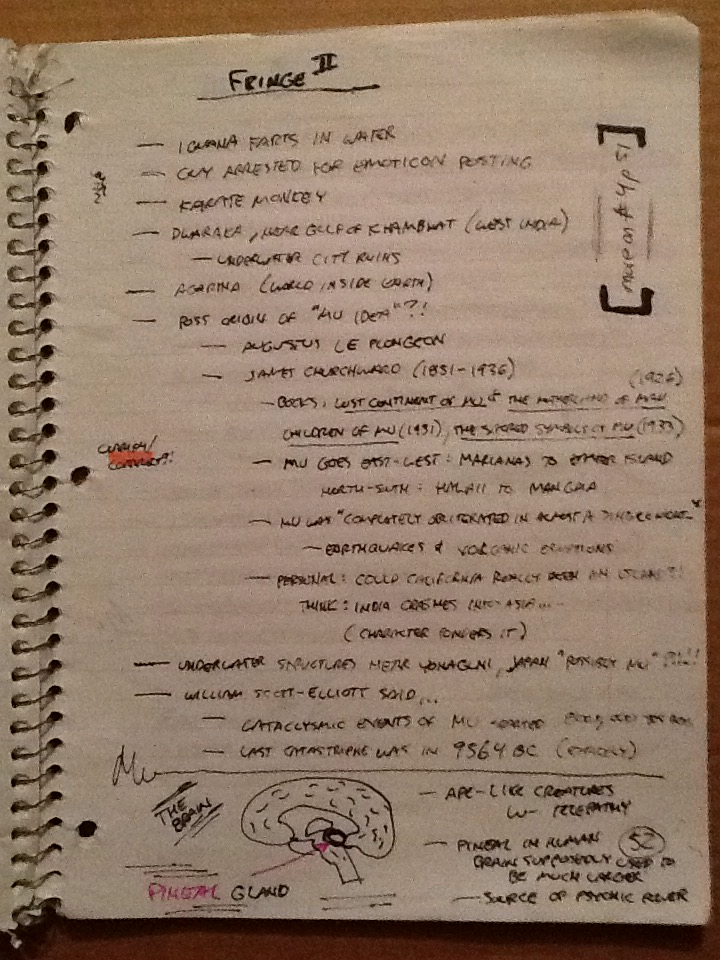 FRINGE II
— IGUANA FARTS IN WATER
— GUY ARRESTED FOR EMOTICON POSTING
— KARATE MONKEY
— DWARAKA, NEAR GULF OF KHAMBHAT (WEST INDIA)
— UNDERWATER CITY RUINS
— AGARTHA (WORLD INSIDE EARTH)
— POSS ORIGIN OF "MU IDEA"?!
— AUGUSTUS LE PLONGEON
— JAMES CHURCHWARD (1851-1936)
(1926)
— BOOKS: LOST CONTINENT OF MU THE MOTHERLAND OF MAN
CHILDREN OF MU (1931), THE SACRED SYMBOLS OF MU (1933)
— MU GOES EAST-WEST: MARIANAS TO EASTER ISLAND
NORTH-SOUTH: HAWAII TO MANGAIA
— MU WAS "COMPLETELY OBLITERATED IN ALMOST A SINGLE NIGHT"
— EARTHQUAKES & VOLCANIC ERUPTIONS
— PERSONAL: COULD CALIFORNIA REALLY BEEN AN ISLAND?!
THINK: INDIA CRASHES INTO ASIA...
(CHARACTER PONDERS IT)
— UNDERWATER STRUCTURES NEAR YONAGUNI, JAPAN "POSSIBLY MU" ?!!!
— WILLIAM SCOTT-ELLIOTT SAID...
— CATACLYSMIC EVENTS OF MU STARTED 800,000 YRS AGO
— LAST CATASTROPHE WAS IN 9564 BC (EXACTLY)
MORE ON # 4 p 51
THE BRAIN
PINEAL GLAND
— APE-LIKE CREATURES
W- TELEPATHY
— PINEAL IN HUMAN
BRAIN SUPPOSEDLY USED TO
BE MUCH LARGER
52
— SOURCE OF PSYCHIC POWER